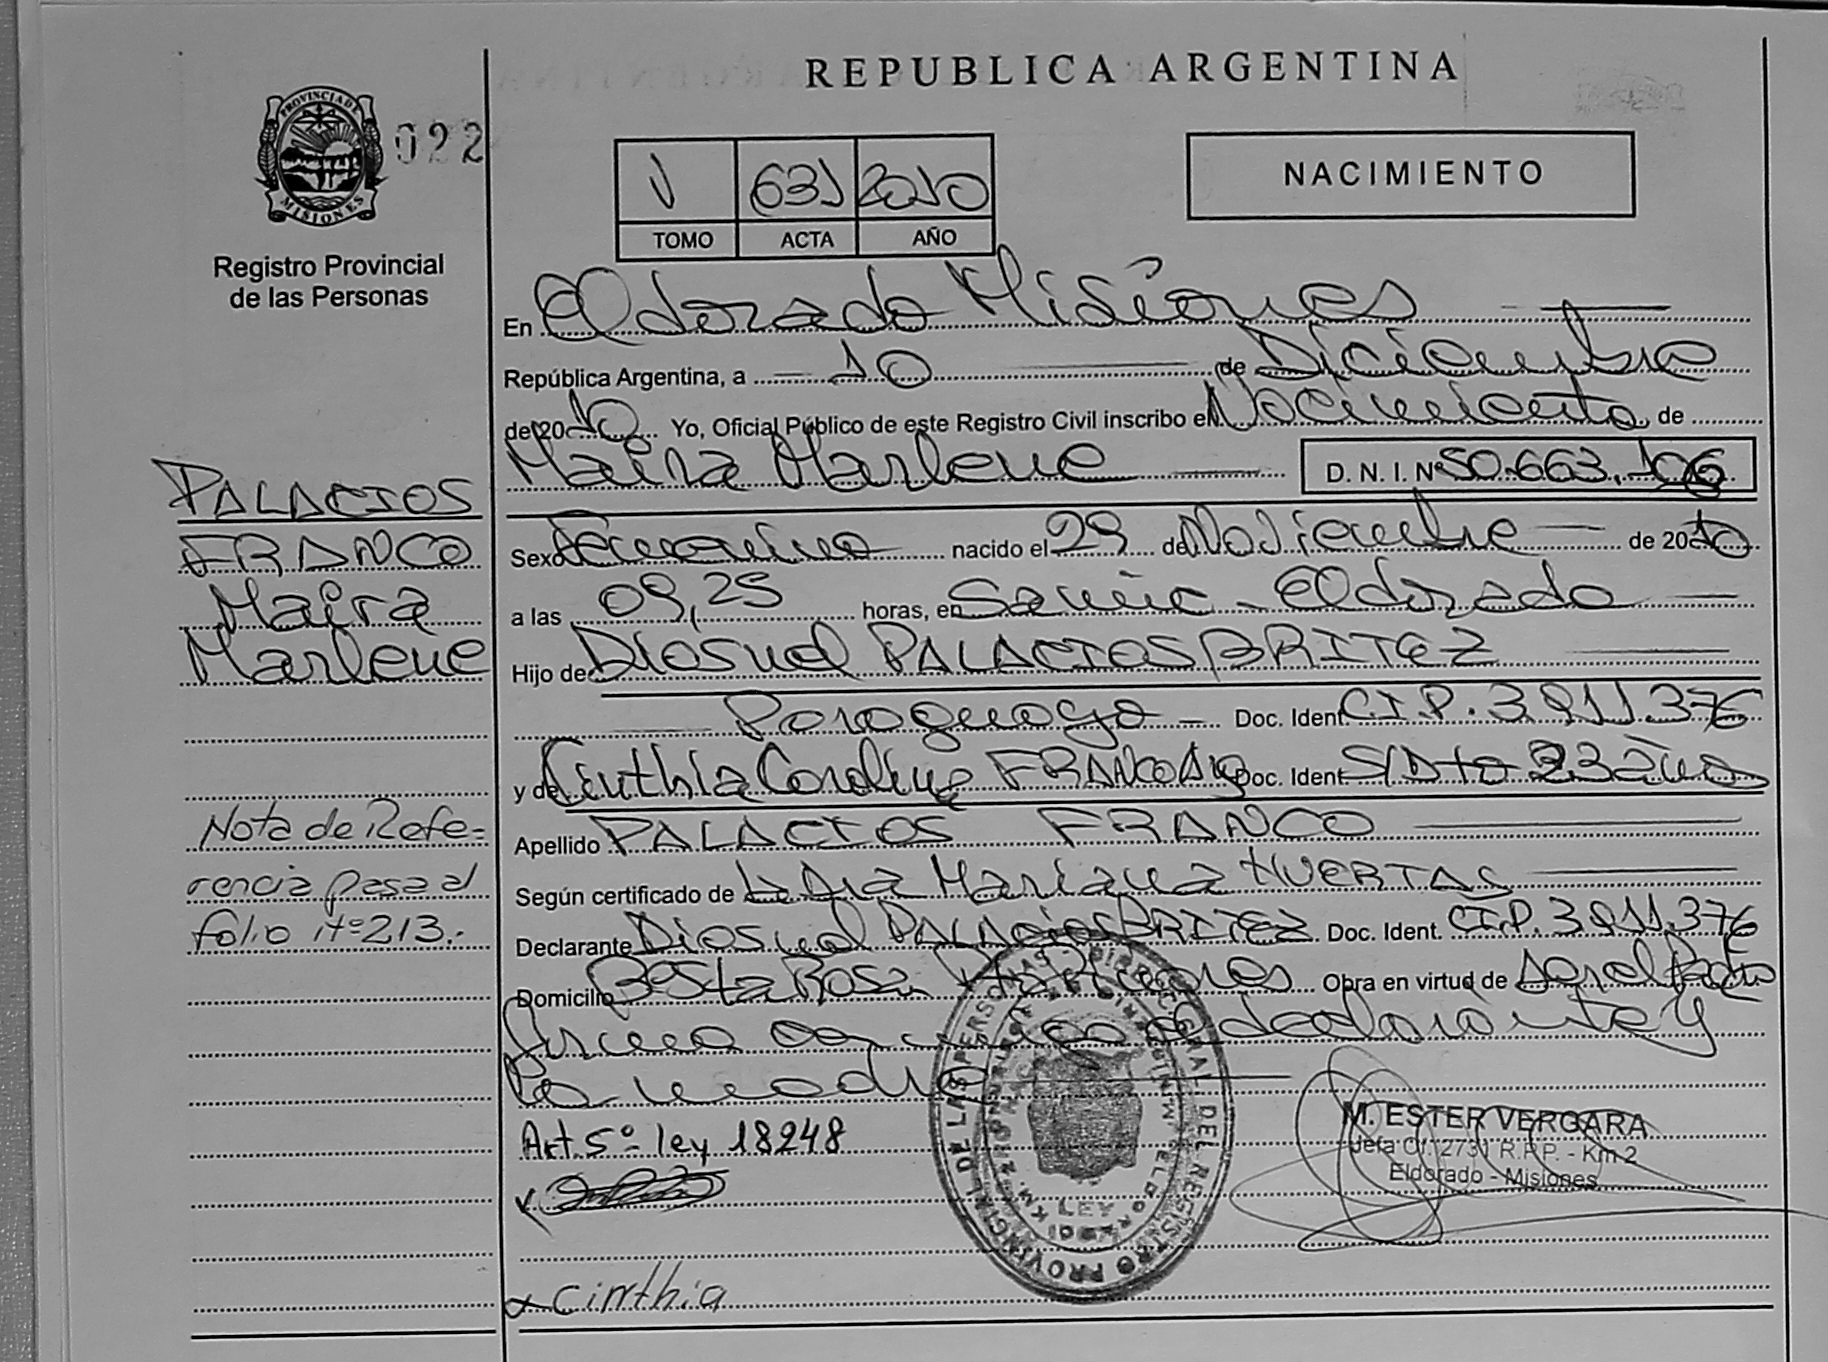 REPUBLICA ARGENTINA
PROVINCIA DE MISIONES
022
Registro Provincial
de las Personas
V 631 2010
TOMO ACTA AÑO
NACIMIENTO
En Eldorado Misiones
República Argentina, a 10 de Diciembre
de 2010 Yo, Oficial Público de este Registro Civil inscribo el Nacimiento de
Maira Marlene D. N. I. Nº 50.663.106
Sexo Femenino nacido el 29 de Noviembre de 2010
a las 09,25 horas, en Samic - Eldorado
Hijo de Diosnel PALACIOS BRITEZ
Paraguayo Doc. Ident. C.I.P. 3.911.376
y de Cinthia Caroline FRANCO Doc. Ident. S/Dto 23 años
Apellido PALACIOS FRANCO
Según certificado de Mariana HUERTAS
Declarante Diosnel PALACIOS BRITEZ Doc. Ident. C.I.P. 3.911.376
Domicilio Rosa Obra en virtud de ser el Padre
firma conmigo el declarante y
la madre
Art. 5º ley 18248
x cinthia
PALACIOS
FRANCO
Maira
Marlene
Nota de Refe=
rencia pasa al
folio nº 213.-
M. ESTER VERGARA
Jefa Of. 2731 R.P.P. - Km 2
Eldorado - Misiones
DEL REGISTRO PROVINCIAL DE LAS PERSONAS
LEY